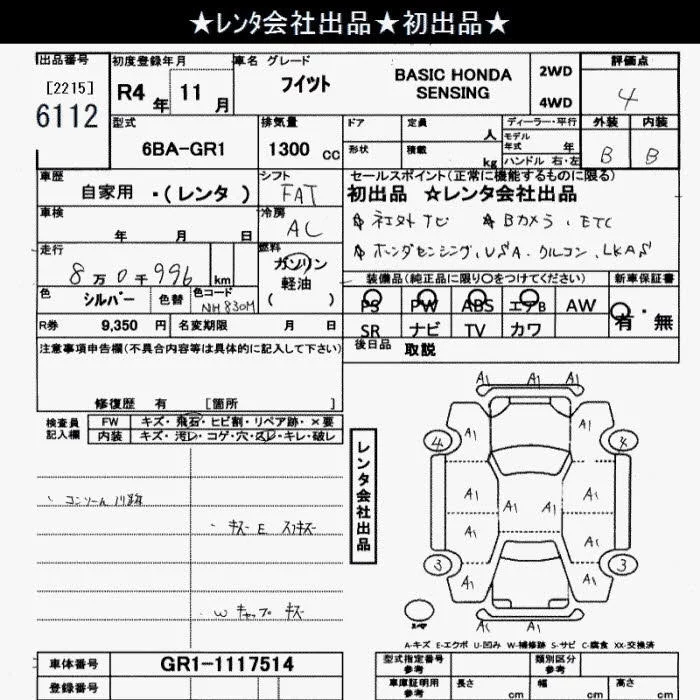 ★レンタ会社出品★初出品★
出品番号 初度登録年月 車名 グレード 評価点
[2215] 6112 R4年 11月 フイット BASIC HONDA SENSING 2WD 4WD 4
型式 排気量 ドア 定員 人 ディーラー・平行 外装 内装
6BA-GR1 1300 cc 形状 積載 kg モデル年式 年 ハンドル 右・左 B B
車歴 シフト セールスポイント(正常に機能するものに限る)
自家用 ・(レンタ) FAT 初出品 ☆レンタ会社出品
車検 年 月 日 冷房 AC
ナビ Bカメラ、ETC
走行 8万0千996 km 燃料 ガソリン 軽油 ( )
ホンダセンシング、VSA、クルコン、LKAS
装備品(純正品に限り○をつけてください) 新車保証書
色 シルバー 色替 色コード NH830M PS PW ABS エアB AW 有・無
R券 9,350 円 名変期限 月 日 SR ナビ TV カワ
注意事項申告欄(不具合内容等は具体的に記入して下さい) 後日品 取説
修復歴 有 [箇所 ]
検査員記入欄 FW キズ・飛石・ヒビ割・リペア跡・×要
内装 キズ・汚レ・コゲ・穴・スレ・キレ・破レ
レンタ会社出品
A1 A1 A1
4 A1 A1 4
A1 A1 A1 A1
A1 A1
3 A1 A1 3
A1 A1
コンソール
キズ E スリキズ
W キャップ キズ
スペア
A-キズ E-エクボ U-凹み W-補修跡 S-サビ C-腐食 XX-交換済
車体番号 GR1-1117514 型式指定番号 参考 類別区分 参考
登録番号 車庫証明用 参考 長さ cm 幅 cm 高さ cm